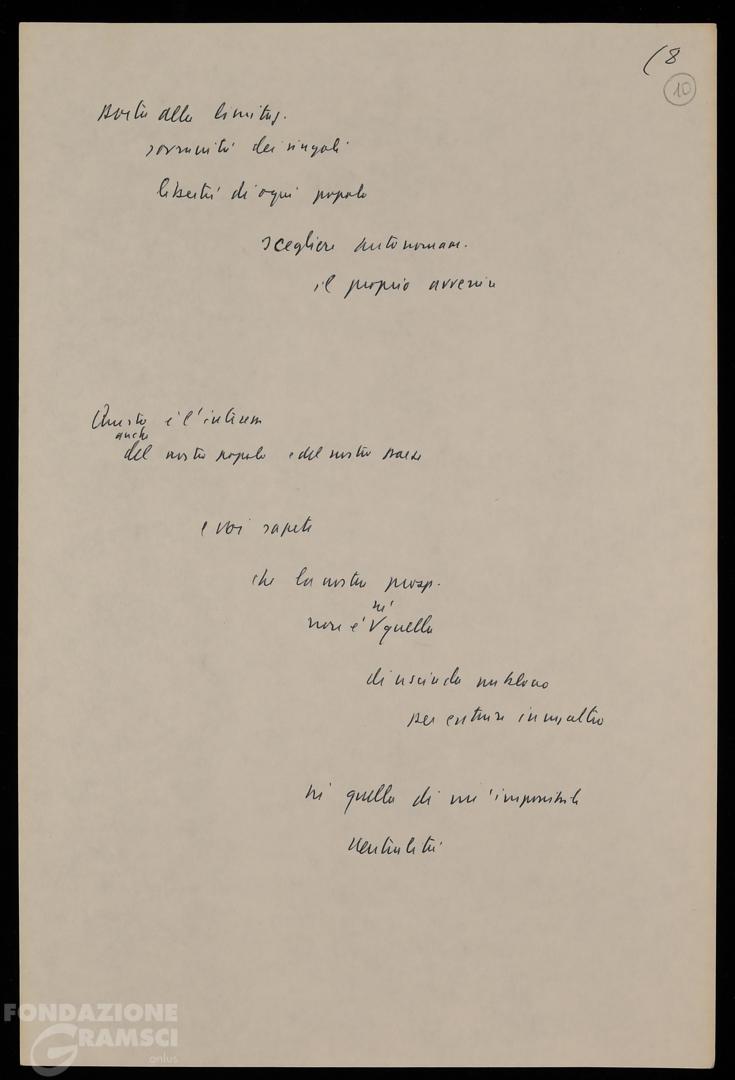 (8
10
Basta alla limitaz.
sovranità dei singoli
libertà di ogni popolo
scegliere autonomam.
il proprio avvenire
Questo è l'interesse
anche
del nostro popolo e del nostro Paese
e voi sapete
che la nostra prosp.
né
non è V quella
di uscire da un blocco
per entrare in un altro
né quella di un'impossibile
Neutralità
FONDAZIONE
GRAMSCI
onlus